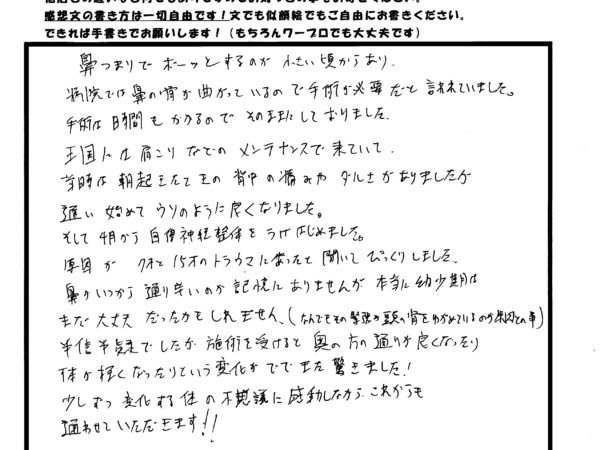 感想文の書き方は一切自由です！文でも似顔絵でもご自由にお書きください。
できれば手書きでお願いします！（もちろんワープロでも大丈夫です）
鼻つまりでボーッとするのが小さい頃からあり、
病院では鼻の骨が曲がっているので手術が必要だと言われていました。
手術は時間もかかるのでそのままにしておりました。
王国には肩こりなどのメンテナンスで来ていて、
当時は朝起きたてきの背中の痛みやダルさがありましたが
通い始めてウソのように良くなりました。
そして4月から自律神経整体をうけはじめました。
原因が 才と15才のトラウマにあったと聞いてびっくりしました。
鼻がいつから通り辛いのか記憶にありませんが本当に幼少期は
まだ大丈夫だったかもしれません、（なんでもその緊張が頭の骨をゆがめているのが原因との事）
半信半疑でしたが施術を受けると奥の方の通りが良くなったり
体が軽くなったりという変化がでてまた驚きました！
少しずつ変化する体の不思議に感動しながら、これからも
通わせていただきます！！